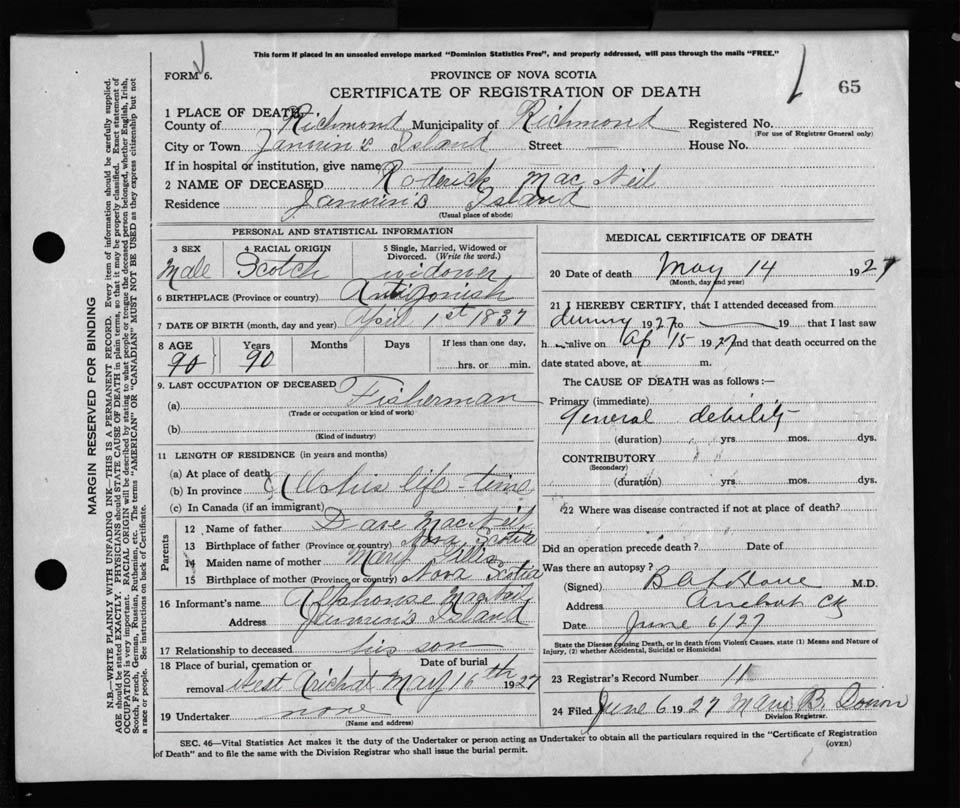 This form if placed in an unsealed envelope marked "Dominion Statistics Free", and properly addressed, will pass through the mails "FREE."
FORM 6.
PROVINCE OF NOVA SCOTIA
CERTIFICATE OF REGISTRATION OF DEATH
65
1 PLACE OF DEATH
County of Richmond Municipality of Richmond Registered No.
(For use of Registrar General only)
City or Town Janvrin's Island Street — House No.
If in hospital or institution, give name
2 NAME OF DECEASED Roderick Mac Neil
Residence Janvrin's Island
(Usual place of abode)
PERSONAL AND STATISTICAL INFORMATION
3 SEX Male
4 RACIAL ORIGIN Scotch
5 Single, Married, Widowed or Divorced. (Write the word.) widower
6 BIRTHPLACE (Province or country) Antigonish
7 DATE OF BIRTH (month, day and year) April 1st 1837
8 AGE 90 Years 90 Months Days If less than one day, hrs. or min.
9. LAST OCCUPATION OF DECEASED
(a) Fisherman
(Trade or occupation or kind of work)
(b)
(Kind of industry)
11 LENGTH OF RESIDENCE (in years and months)
(a) At place of death
(b) In province All his life-time
(c) In Canada (if an immigrant)
Parents
12 Name of father Dave MacNeil
13 Birthplace of father (Province or country) Nova Scotia
14 Maiden name of mother Mary Gillis
15 Birthplace of mother (Province or country) Nova Scotia
16 Informant's name Alphonse MacNeil
Address Janvrin's Island
17 Relationship to deceased his son
18 Place of burial, cremation or removal West Arichat Date of burial May 16th 1927
19 Undertaker none
(Name and address)
MEDICAL CERTIFICATE OF DEATH
20 Date of death May 14 1927
(Month, day and year)
21 I HEREBY CERTIFY, that I attended deceased from
during 1927 to — 19 that I last saw
h alive on Ap 15 1927 and that death occurred on the
date stated above, at m.
The CAUSE OF DEATH was as follows:—
Primary (immediate)
General debility
(duration) yrs. mos. dys.
CONTRIBUTORY
(Secondary)
(duration) yrs. mos. dys.
22 Where was disease contracted if not at place of death?
Did an operation precede death? Date of
Was there an autopsy?
(Signed) M.D.
Address Arichat CB
Date June 6/27
State the Disease causing Death, or in death from Violent Causes, state (1) Means and Nature of
Injury, (2) whether Accidental, Suicidal or Homicidal
23 Registrar's Record Number 11
24 Filed June 6 1927 B. Doiron
Division Registrar.
SEC. 46—Vital Statistics Act makes it the duty of the Undertaker or person acting as Undertaker to obtain all the particulars required in the "Certificate of Registration
of Death" and to file the same with the Division Registrar who shall issue the burial permit.
(OVER)
MARGIN RESERVED FOR BINDING
N.B.—WRITE PLAINLY WITH UNFADING INK—THIS IS A PERMANENT RECORD. Every item of information should be carefully supplied.
AGE should be stated EXACTLY. PHYSICIANS should STATE CAUSE OF DEATH in plain terms, so that it may be properly classified. Exact statement of
OCCUPATION is very important. RACIAL ORIGIN will be described by stating to what people or tongue the deceased person belonged, whether English, Irish,
Scotch, French, German, Russian, Ruthenian, etc. The terms "AMERICAN" OR "CANADIAN" MUST NOT BE USED as they express citizenship but not
a race or people. See instructions on back of Certificate.